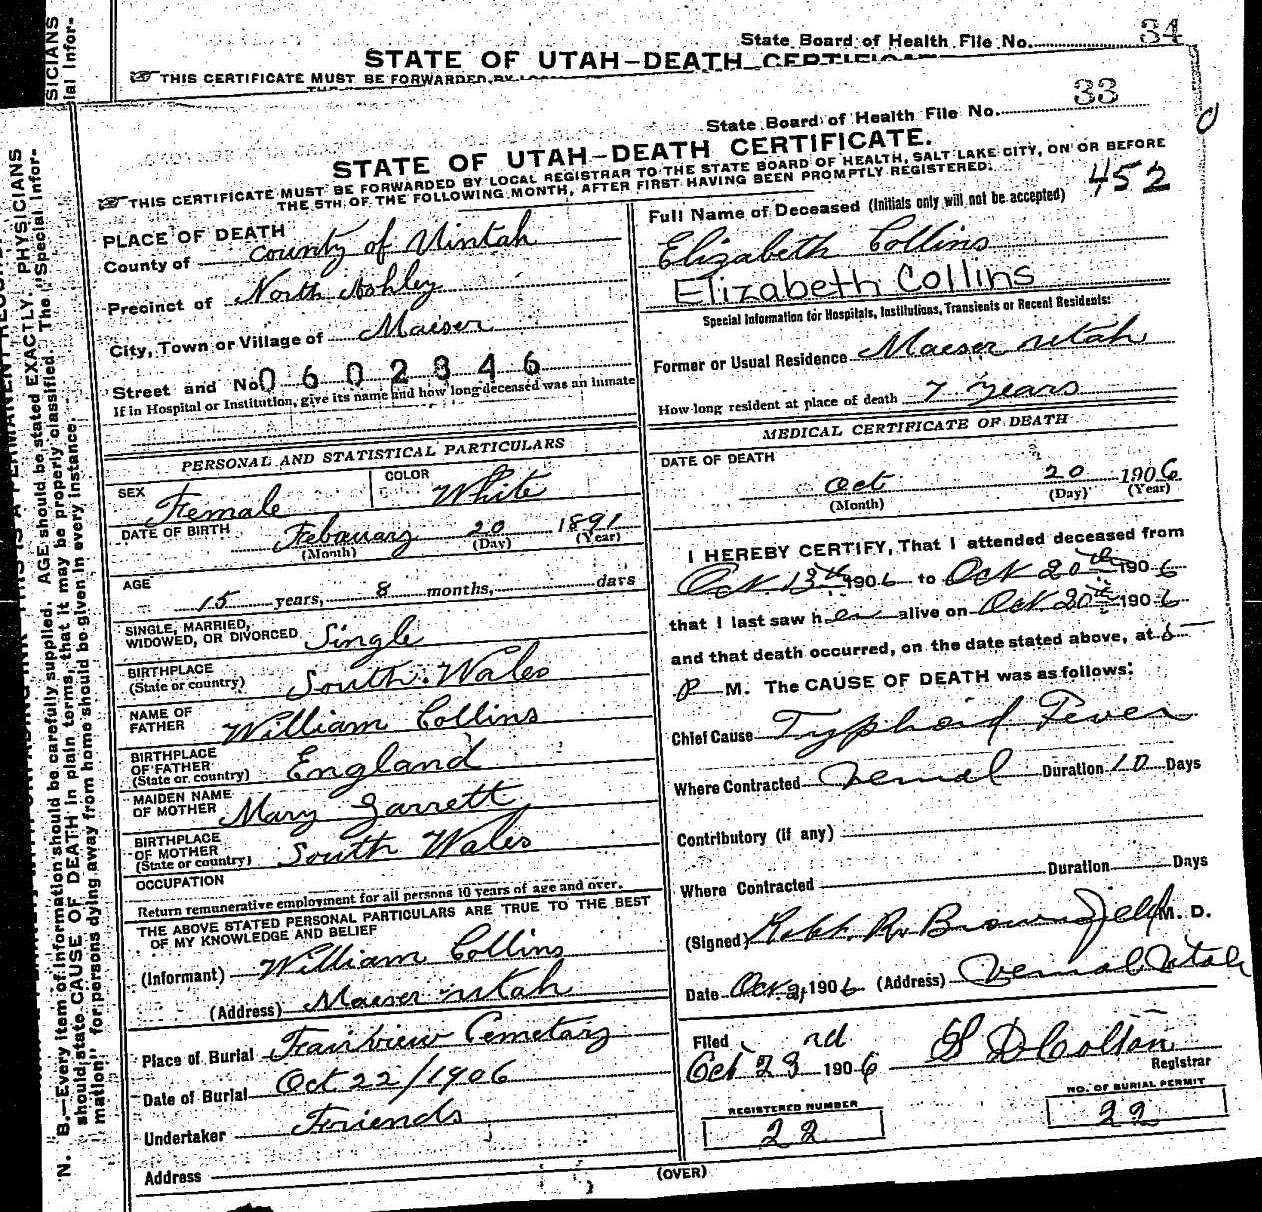 State Board of Health File No. 34
STATE OF UTAH—DEATH CERTIFICATE
THIS CERTIFICATE MUST BE FORWARDED BY
State Board of Health File No. 33
STATE OF UTAH—DEATH CERTIFICATE.
THIS CERTIFICATE MUST BE FORWARDED BY LOCAL REGISTRAR TO THE STATE BOARD OF HEALTH, SALT LAKE CITY, ON OR BEFORE
THE 5TH OF THE FOLLOWING MONTH, AFTER FIRST HAVING BEEN PROMPTLY REGISTERED.
452
PLACE OF DEATH
County of County of Uintah
Precinct of North Ashley
City, Town or Village of Maeser
Street and No. 0602346
If in Hospital or Institution, give its name and how long deceased was an Inmate
PERSONAL AND STATISTICAL PARTICULARS
SEX Female COLOR White
DATE OF BIRTH Febauary 20 1891
(Month) (Day) (Year)
AGE 15 years, 8 months, days
SINGLE, MARRIED,
WIDOWED, OR DIVORCED Single
BIRTHPLACE
(State or country) South Wales
NAME OF
FATHER William Collins
BIRTHPLACE
OF FATHER
(State or country) England
MAIDEN NAME
OF MOTHER Mary Jarrett
BIRTHPLACE
OF MOTHER
(State or country) South Wales
OCCUPATION
Return remunerative employment for all persons 10 years of age and over.
THE ABOVE STATED PERSONAL PARTICULARS ARE TRUE TO THE BEST
OF MY KNOWLEDGE AND BELIEF
(Informant) William Collins
(Address) Maeser utah
Place of Burial Fairview Cemetary
Date of Burial Oct 22/1906
Undertaker Friends
Address
Full Name of Deceased (Initials only will not be accepted)
Elizabeth Collins
Elizabeth Collins
Special Information for Hospitals, Institutions, Transients or Recent Residents:
Former or Usual Residence Maeser utah
How long resident at place of death 7 years
MEDICAL CERTIFICATE OF DEATH
DATE OF DEATH
Oct 20 1906
(Month) (Day) (Year)
I HEREBY CERTIFY, That I attended deceased from
Oct. 13th 1906 to Oct 20th 1906
that I last saw her alive on Oct 20th 1906
and that death occurred, on the date stated above, at
P M. The CAUSE OF DEATH was as follows:
Chief Cause Typhoid Fever
Where Contracted Vernal Duration 10 Days
Contributory (if any)
Duration Days
Where Contracted
(Signed) Robt. R. Brownfield M. D.
Date Oct 1906 (Address) Vernal Utah
Filed rd
Oct 23 1906 S D Colton
Registrar
REGISTERED NUMBER
22
NO. OF BURIAL PERMIT
22
(OVER)
N. B.—Every item of information should be carefully supplied. AGE should be stated EXACTLY. PHYSICIANS
should state CAUSE OF DEATH in plain terms, that it may be properly classified. The "Special Infor-
mation" for persons dying away from home should be given in every instance.